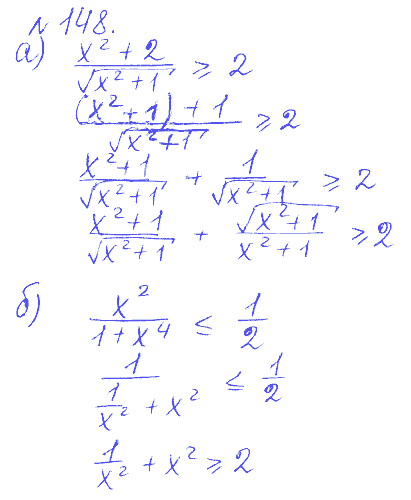 № 148.
а) (x² + 2)/√(x² + 1) ≥ 2
((x² + 1) + 1)/√(x² + 1) ≥ 2
(x² + 1)/√(x² + 1) + 1/√(x² + 1) ≥ 2
(x² + 1)/√(x² + 1) + √(x² + 1)/(x² + 1) ≥ 2
б) x²/(1 + x⁴) ≤ 1/2
1/(1/x² + x²) ≤ 1/2
1/x² + x² ≥ 2